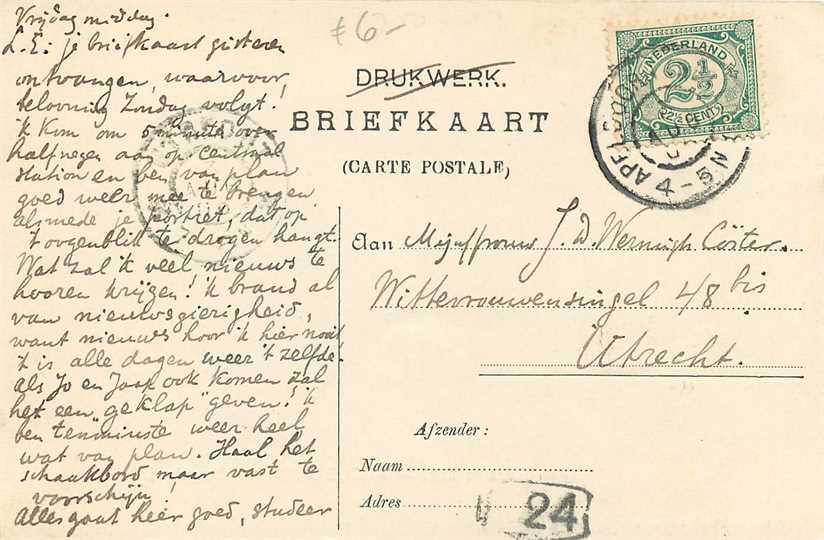 Vrijdag middag.
L.E. je briefkaart gisteren
ontvangen, waarvoor,
belooning Zondag volgt.
'k Kom om 5 minute over
half negen aan op Centraal
station en ben van plan
goed weer mee te brengen,
alsmede je portret, dat op
't oogenblik te drogen hangt.
Wat zal 'k veel nieuws te
hooren krijgen! 'k brand al
van nieuwsgierigheid,
want nieuws hoor 'k hier nooit
't is alle dagen weer 't zelfde.
als Jo en Jaap ook komen zal
het een "geklap" geven! 'k
ben tenminste weer heel
wat van plan. Haal het
schaakbord maar vast te
voorschijn!
Alles gaat hier goed, studeer
£6-
DRUKWERK.
BRIEFKAART
(CARTE POSTALE)
NEDERLAND
2½
2½ CENT
4-5N
Aan Mejuffrouw J. W. Cöster.
Wittevrouwensingel 48 bis
Utrecht.
Afzender:
Naam
Adres
24